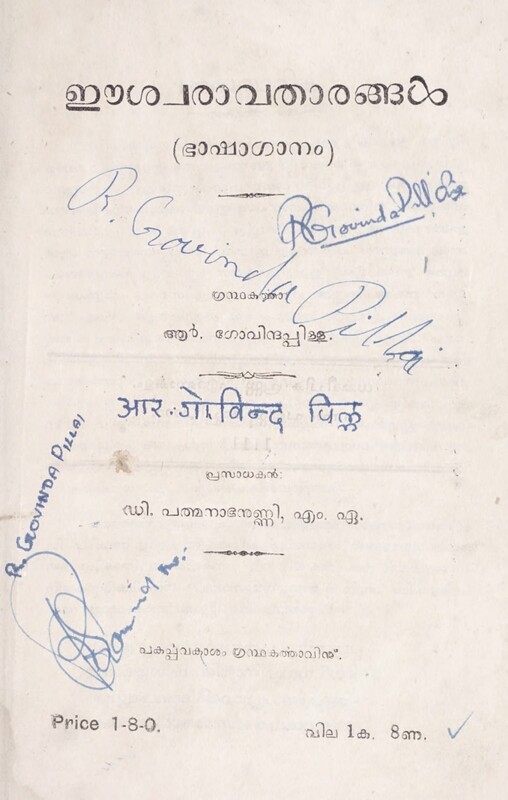 ഈശ്വരാവതാരങ്ങൾ
(ഭാഷാഗാനം)
R. Govinda Pillai
R Govinda Pillai
ഗ്രന്ഥകർത്താ
ആർ. ഗോവിന്ദപ്പിള്ള.
आर. गोविन्द पिल्ल
R. GOVINDA PILLAI
പ്രസാധകൻ:
ഡി. പത്മനാഭനുണ്ണി, എം. ഏ.
പകർപ്പവകാശം ഗ്രന്ഥകർത്താവിന്ന്.
Price 1-8-0.
വില 1ക. 8ണ.